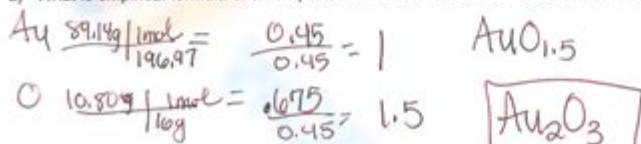 Au 89.14g | 1mol / 196.97 = 0.45 / 0.45 = 1 AuO1.5
O 10.80g | 1mol / 16g = .675 / 0.45 = 1.5 Au2O3